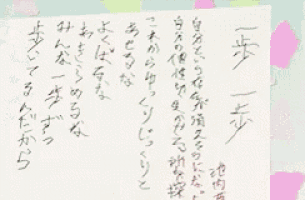 一歩一歩
池内
自分という存在が消えるのには
自分の個性が生かせる所を探
これからゆっくりじっくりと
あせるな
よくばるな
あきらめるな
みんな一歩ずつ
歩いてるんだから